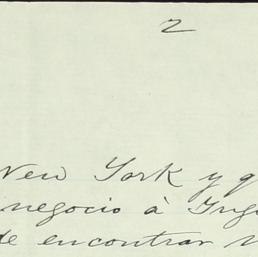 2
New York y q
negocio à Ing
de encontrar